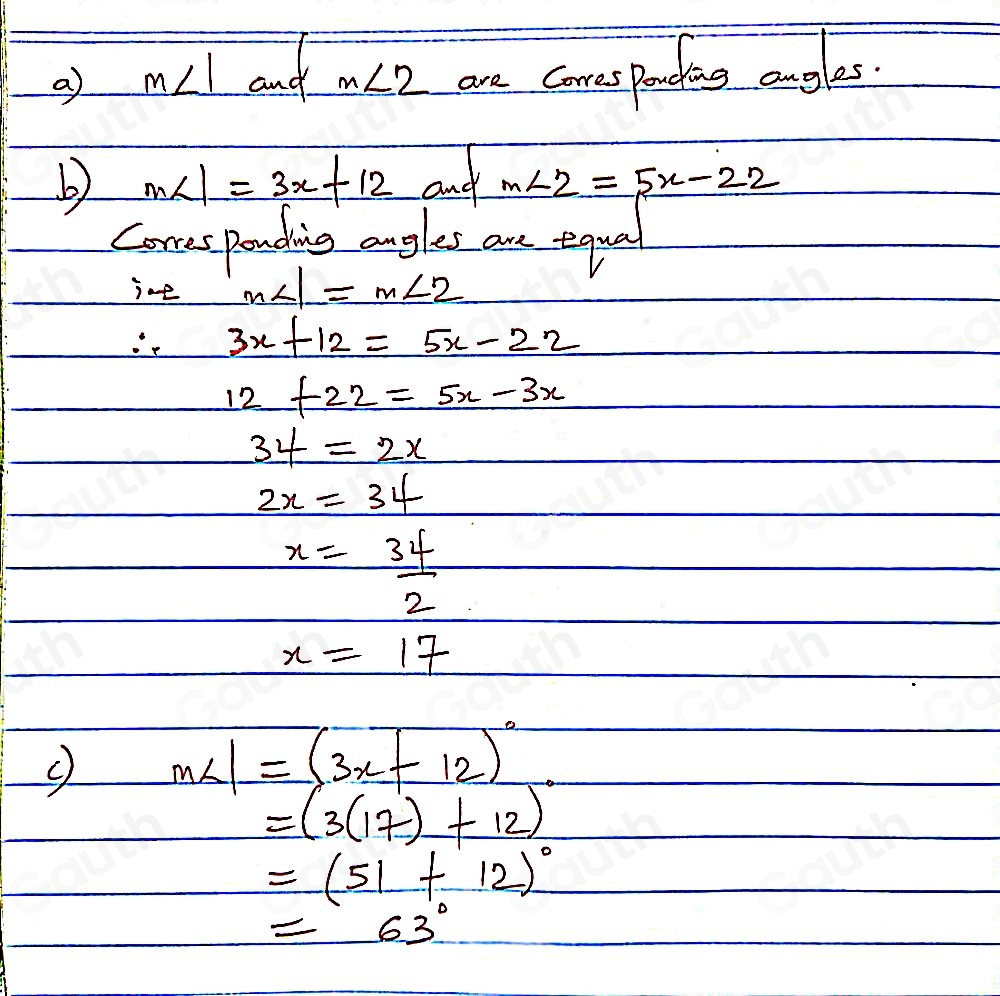 a) m∠1 and m∠2 are Corresponding angles.
b) m∠1 = 3x+12 and m∠2 = 5x-22
Corresponding angles are equal
i.e m∠1 = m∠2
∴ 3x+12 = 5x-22
12 +22 = 5x-3x
34 = 2x
2x = 34
x = 34
2
x = 17
c) m∠1 = (3x+ 12)°
=(3(17) + 12)°
= (51 + 12)°
= 63°